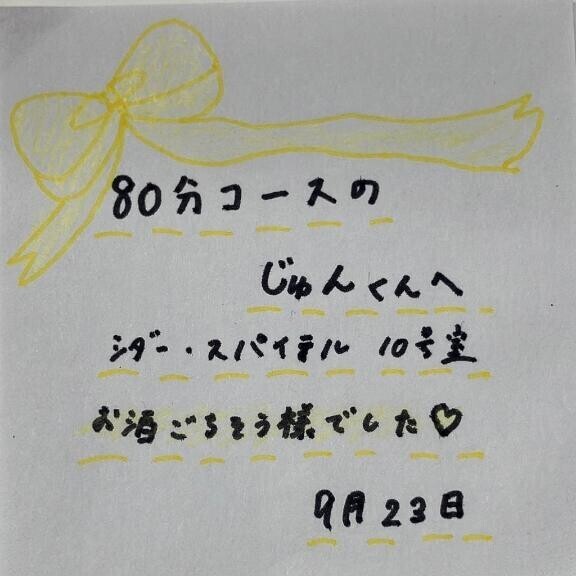 80分コースの
じゅんくんへ
シダー・スパイテル 10号室
お酒ごちそう様でした♡
9月23日